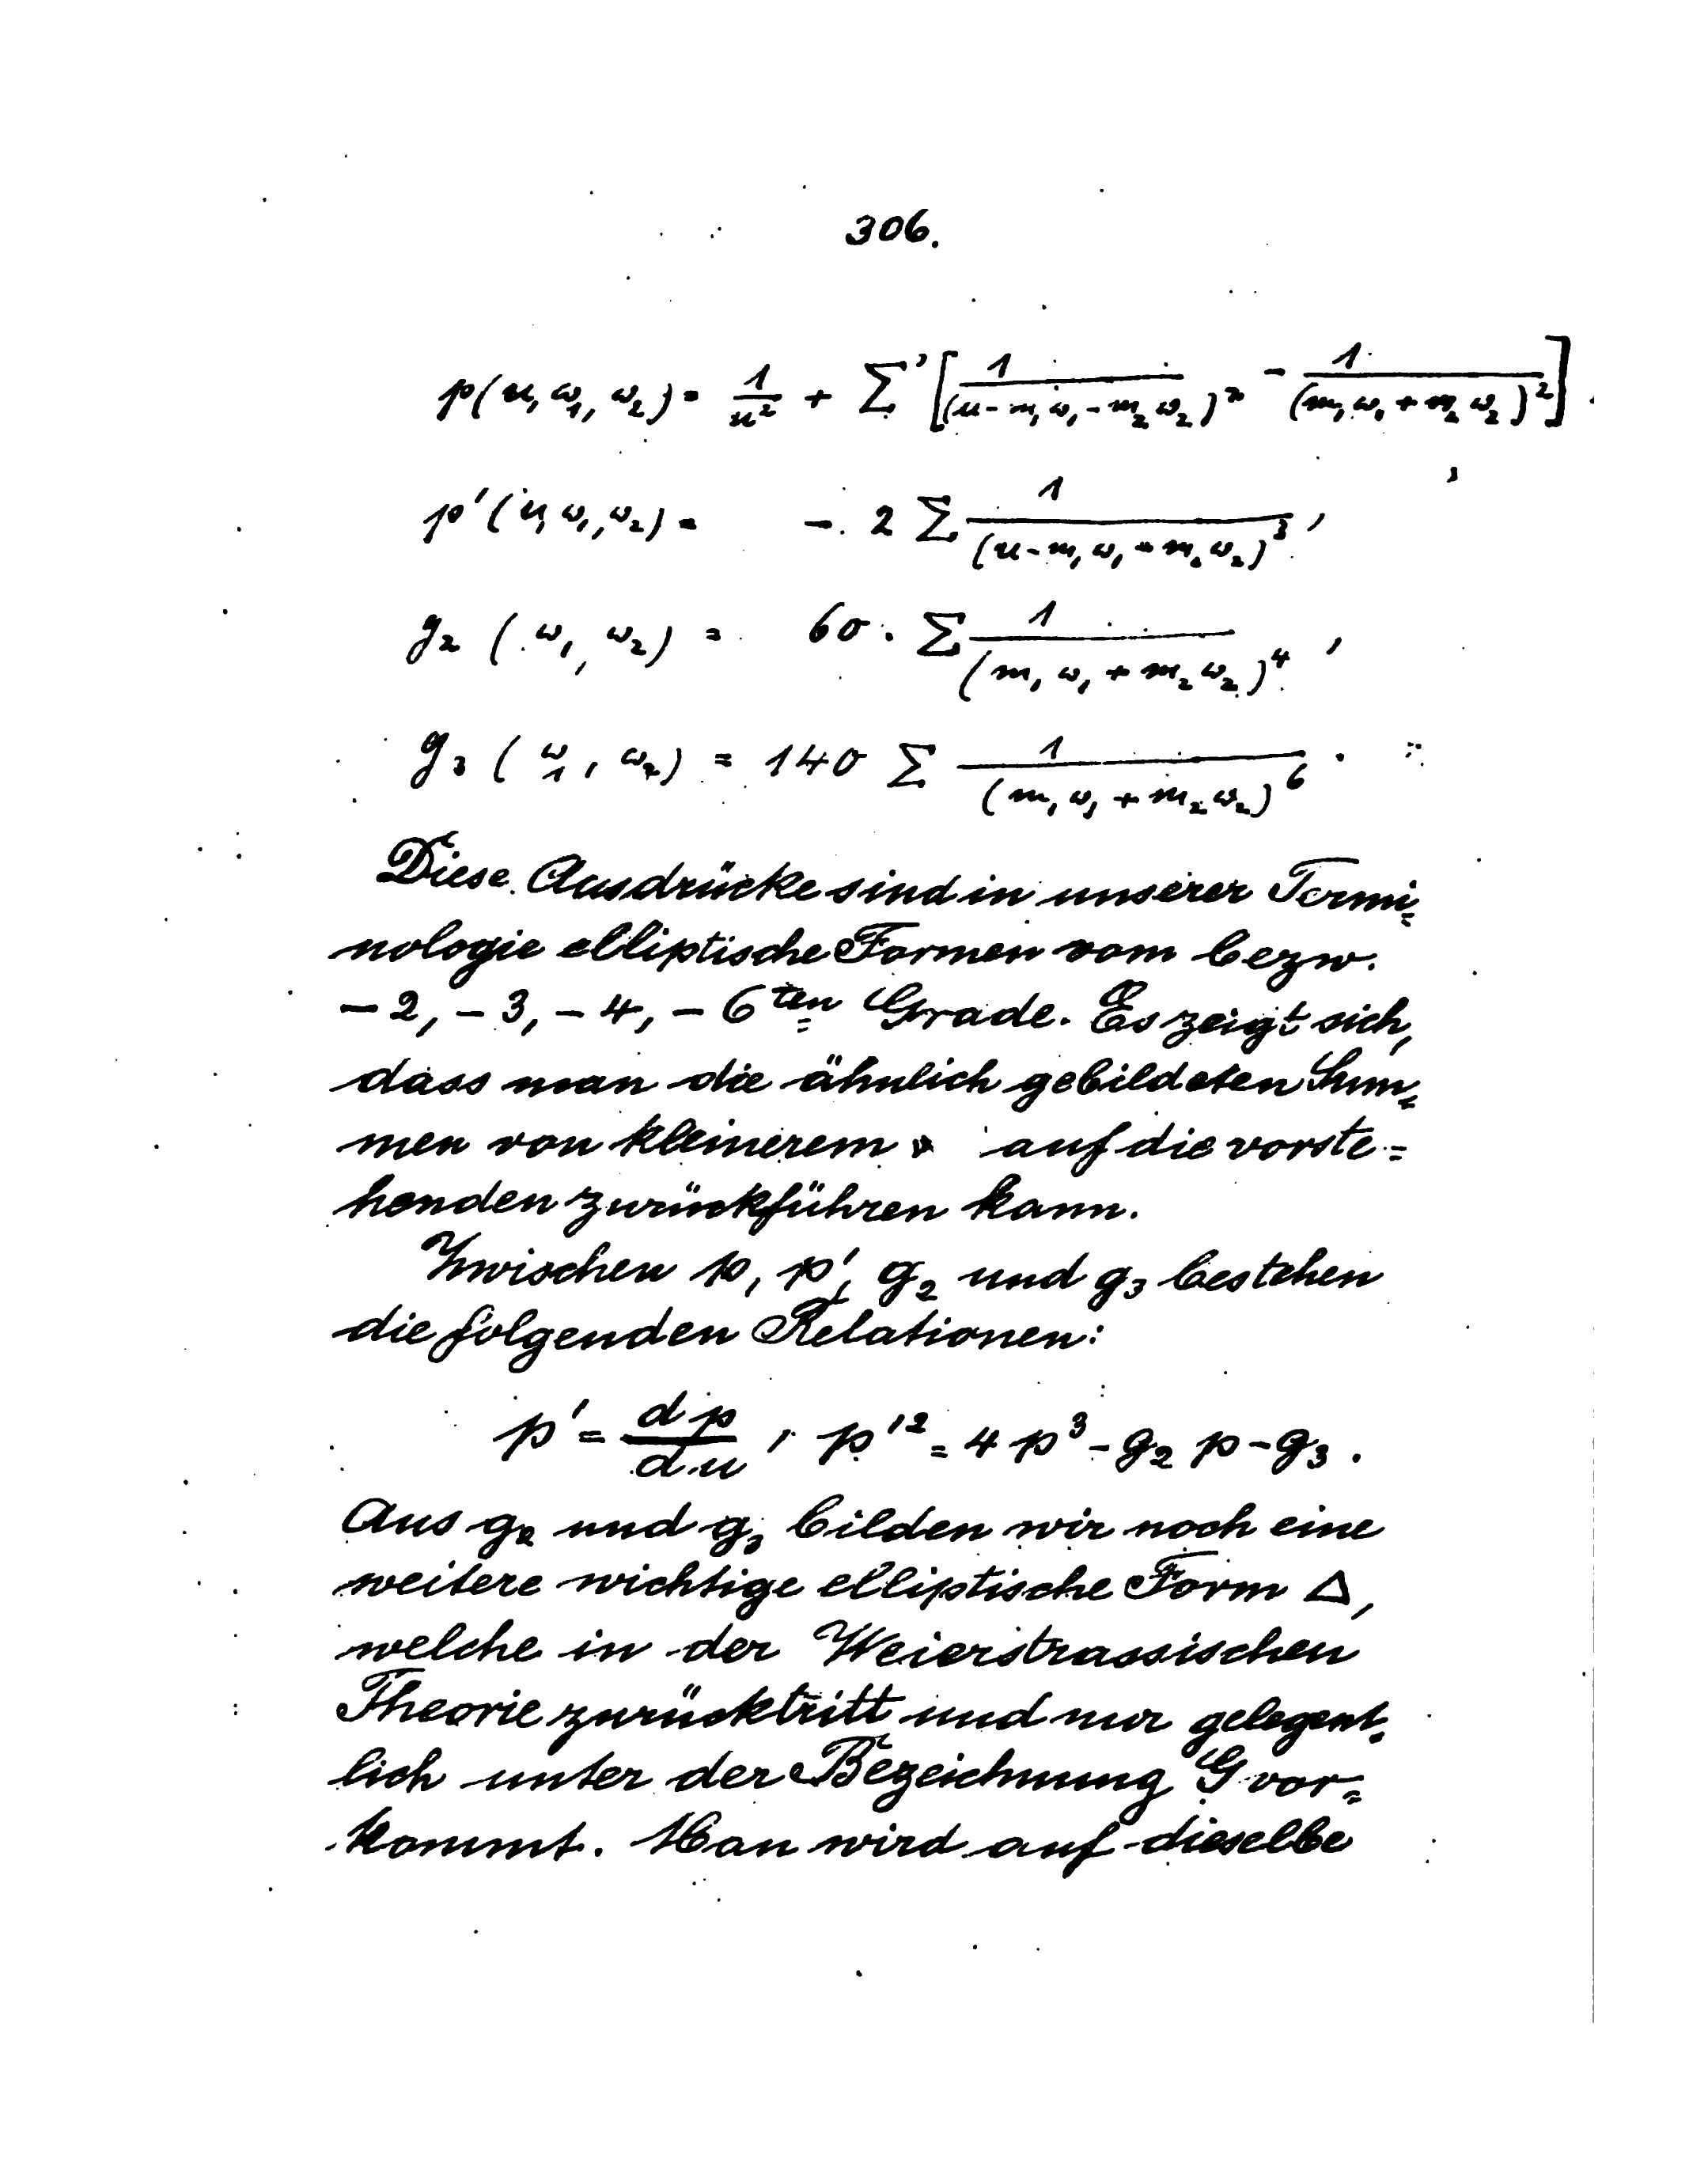 306.
p(u, ω₁, ω₂) = 1/u² + Σ' [1/(u - m₁ω₁ - m₂ω₂)² - 1/(m₁ω₁ + m₂ω₂)²]
p'(u, ω₁, ω₂) = - 2 Σ 1/(u - m₁ω₁ - m₂ω₂)³,
g₂ (ω₁, ω₂) = 60 . Σ 1/(m₁ω₁ + m₂ω₂)⁴,
g₃ (ω₁, ω₂) = 140 Σ 1/(m₁ω₁ + m₂ω₂)⁶.
Diese Ausdrücke sind in unserer Termi=
nologie elliptische Formen vom bezw.
- 2, - 3, - 4, - 6ten Grade. Es zeigt sich,
dass man die ähnlich gebildeten Sum=
men von kleinerem auf die vorste=
henden zurückführen kann.
Zwischen p, p', g₂ und g₃ bestehen
die folgenden Relationen:
p' = dp/du, p'² = 4p³ - g₂ p - g₃.
Aus g₂ und g₃ bilden wir noch eine
weitere wichtige elliptische Form Δ,
welche in der Weierstrassischen
Theorie zurücktritt und nur gelegent=
lich unter der Bezeichnung G vor=
kommt. Man wird auf dieselbe